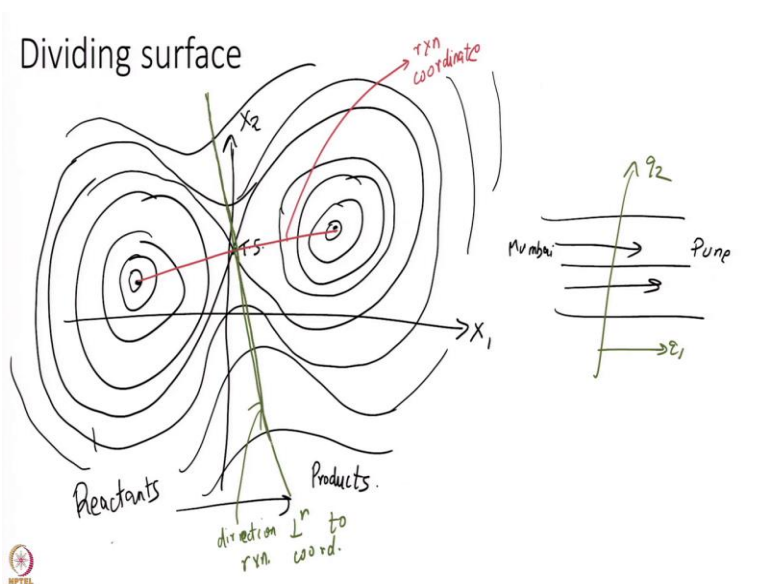 Dividing surface
rxn
coordinate
X2
T.S.
X1
Reactants
Products.
direction ⊥r to
rxn. coord.
q2
Mumbai
Pune
q1
NPTEL